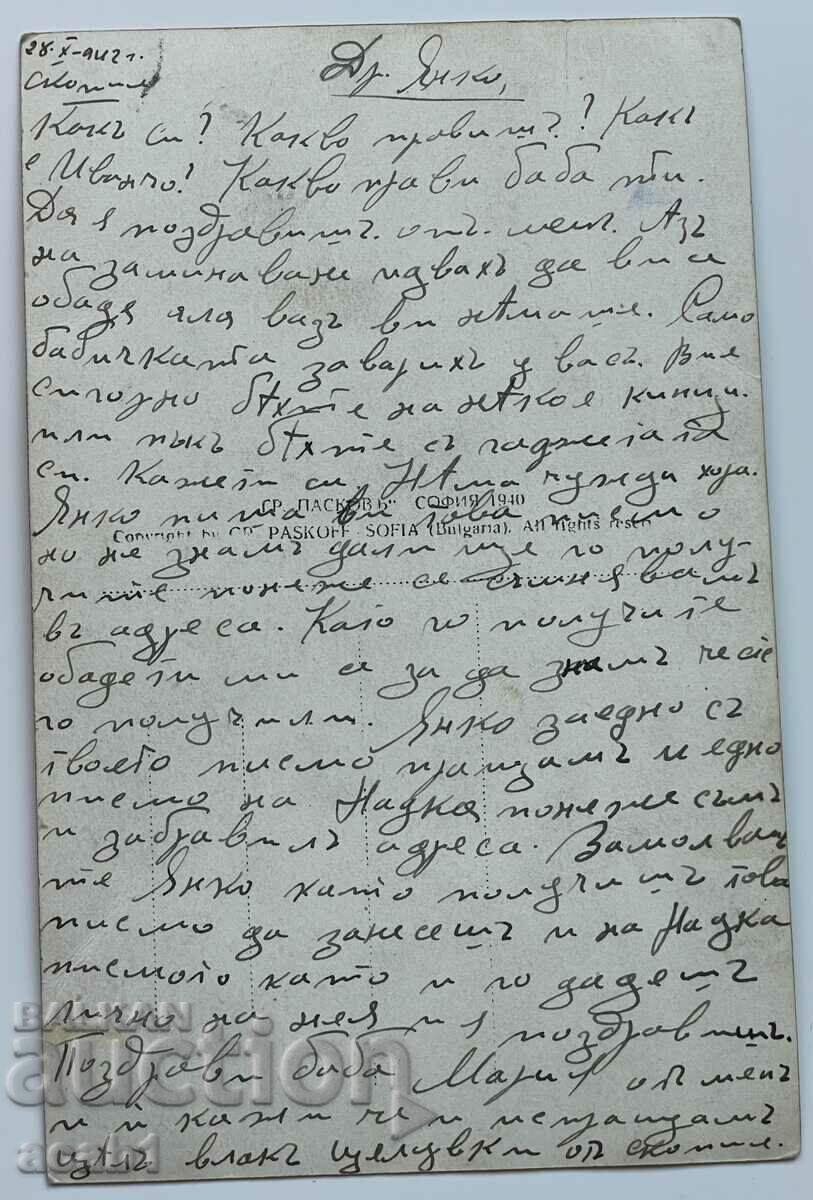 28.X-942 г.
Скопие
Др. Янко,
Какъ си? Какво правишъ? Какъ
е Иванчо? Какво прави баба ти.
Да я поздравишъ отъ менъ. Азъ
на заминаване идвахъ да ви се
обадя ала вазъ ви нѣмаше. Само
бабичката заварихъ у васъ. Вие
сигорно бѣхте на нѣкое кино
или пъкъ бѣхте съ гаджетата
си. Кажети си. Нѣма чужда хора.
СР. "ПАСКОВЪ" СОФИЯ 1940
Янко пиша ви това писмо
Copyright by GR. PASKOFF SOFIA (Bulgaria). All rights reserv
но не знамъ дали ще го полу-
чите понеже се съмнявамъ
въ адреса. Като го получите
обадети ми се за да знамъ че сте
го получили. Янко заедно съ
твоето писмо пращамъ и едно
писмо на Надка понеже съмъ
и забравилъ адреса. Замолвам
те Янко като получишъ това
писмо да занесешъ и на Надка
писмото като и го дадешъ
лично на нея и я поздравишъ.
Поздрави баба Мария отъ менъ
и и кажи че и испращамъ
цѣлъ влакъ целувки отъ Скопие.
BALKAN
auction
acah1